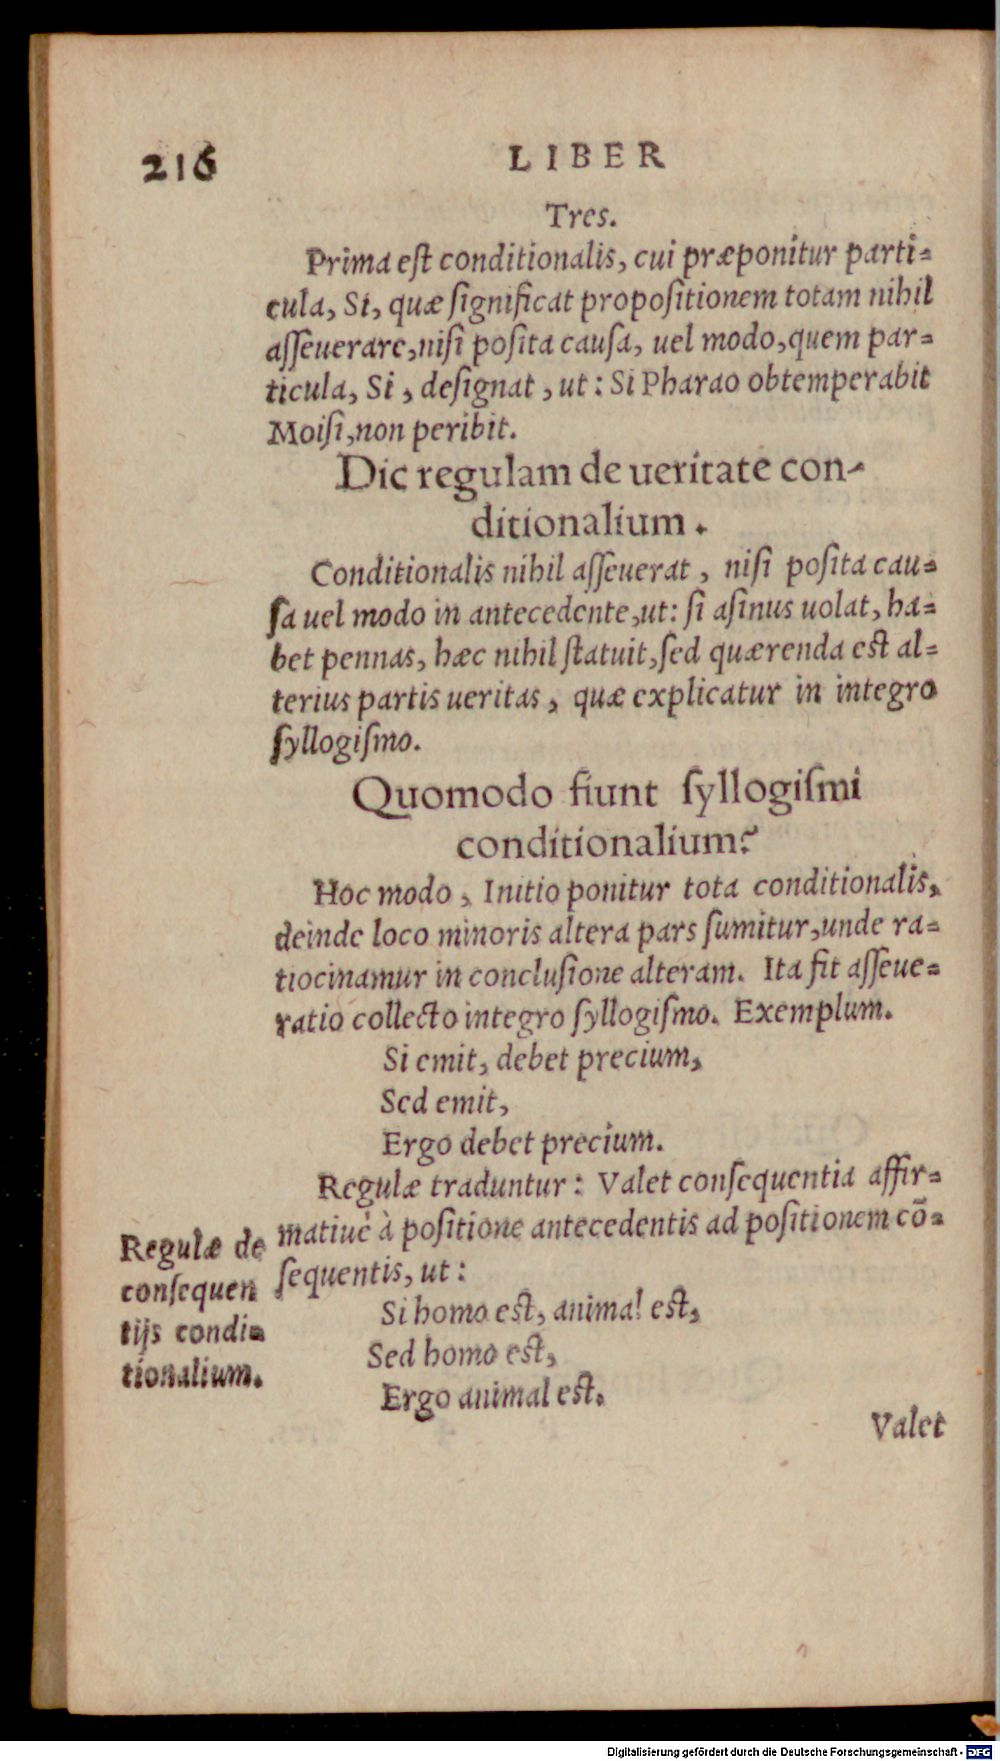 216
LIBER
Tres.
Prima eſt conditionalis, cui præponitur parti=
cula, Si, quæ ſignificat propoſitionem totam nihil
aſſeuerare, niſi poſita cauſa, uel modo, quem par=
ticula, Si, deſignat, ut: Si Pharao obtemperabit
Moiſi, non peribit.
Dic regulam de ueritate con-
ditionalium.
Conditionalis nihil aſſeuerat, niſi poſita cau=
ſa uel modo in antecedente, ut: ſi aſinus uolat, ha=
bet pennas, hæc nihil ſtatuit, ſed quærenda eſt al=
terius partis ueritas, quæ explicatur in integro
ſyllogiſmo.
Quomodo fiunt ſyllogiſmi
conditionalium?
Hoc modo, Initio ponitur tota conditionalis,
deinde loco minoris altera pars ſumitur, unde ra=
tiocinamur in concluſione alteram. Ita fit aſſeue=
ratio collecto integro ſyllogiſmo. Exemplum.
Si emit, debet precium,
Sed emit,
Ergo debet precium.
Regulæ traduntur: Valet conſequentia affir=
matiuè à poſitione antecedentis ad poſitionem cō=
ſequentis, ut:
Si homo eſt, animal eſt,
Sed homo eſt,
Ergo animal eſt.
Regulæ de
conſequen
tijs condi=
tionalium.
Valet
Digitalisierung gefördert durch die Deutsche Forschungsgemeinschaft - DFG